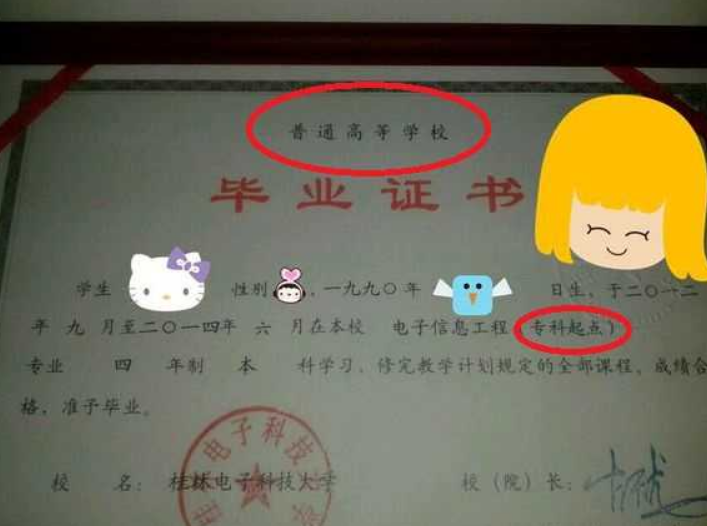 普通高等学校
毕业证书
学生 性别 ,一九九〇年 日生,于二〇一二
年 九 月至二〇一四年 六 月在本校 电子信息工程(专科起点)
专业 四 年制 本 科学习、修完教学计划规定的全部课程,成绩合
格,准予毕业。
校 名: 桂林电子科技大学 校(院)长:
电子科技